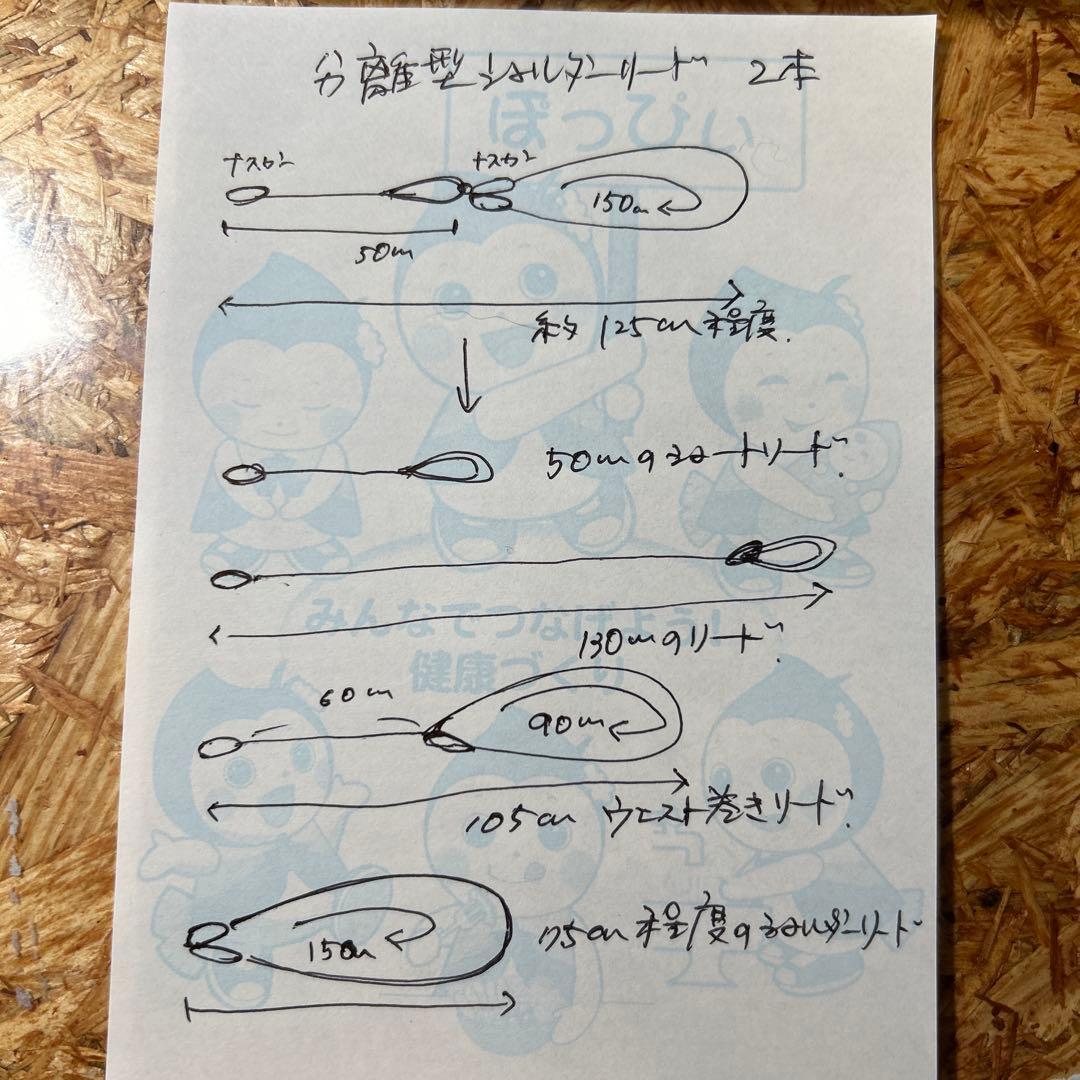 分離型ショルダーリード 2本
ぽっぴぃ
ナスカン ナスカン
150cm
50cm
約125cm程度.
50cmのショートリード.
みんなでつなげよう!
130cmのリード.
健康づくり
60cm
90cm
105cm ウエスト巻きリード.
150cm
75cm程度のショルダーリード